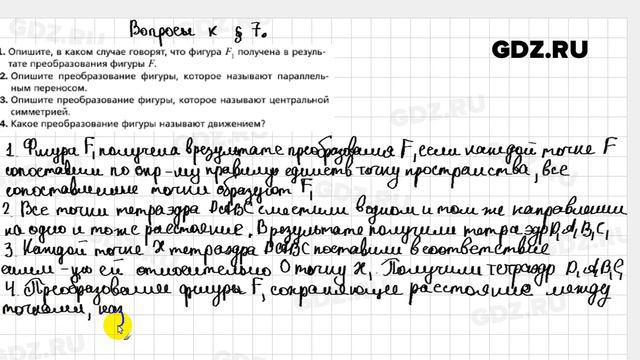 Вопросы к § 7.
GDZ.RU
1. Опишите, в каком случае говорят, что фигура F₁ получена в резуль-
тате преобразования фигуры F.
2. Опишите преобразование фигуры, которое называют параллель-
ным переносом.
3. Опишите преобразование фигуры, которое называют центральной
симметрией.
4. Какое преобразование фигуры называют движением?
1. Фигура F₁ получена в результате преобразования F, если каждой точке F
сопоставили по опр-му правилу единств точку пространства, все
сопоставленные точки образуют F₁
2. Все точки тетраэдра DABC сместили в одном и том же направлении
на одно и тоже расстояние. В результате получили тетраэдр D₁A₁B₁C₁
3. Каждой точке X тетраэдра DABC поставили в соответствие
симм-ую ей относительно O точку X₁. Получили тетраэдр D₁A₁B₁C₁
4. Преобразование фигуры F, сохраняющее расстояние между
точками, наз